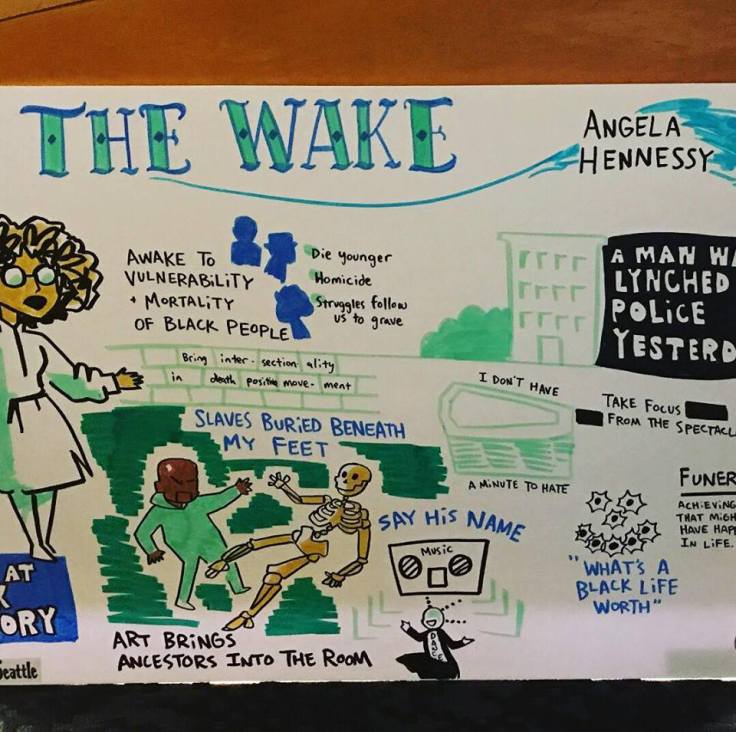 THE WAKE
ANGELA
HENNESSY
AWAKE TO
VULNERABILITY
+ MORTALITY
OF BLACK PEOPLE
Die younger
Homicide
Struggles follow
us to grave
A MAN WA
LYNCHED
POLICE
YESTERD
Bring inter-section ality
in death positive move-ment
I DON'T HAVE
A MINUTE TO HATE
TAKE FOCUS
FROM THE SPECTACL
SLAVES BURIED BENEATH
MY FEET
SAY HIS NAME
MUSIC
DANCE
FUNER
ACHIEVING
THAT MIGH
HAVE HAPP
IN LIFE.
"WHAT'S A
BLACK LIFE
WORTH"
AT
K
ORY
ART BRINGS
ANCESTORS INTO THE ROOM
Seattle